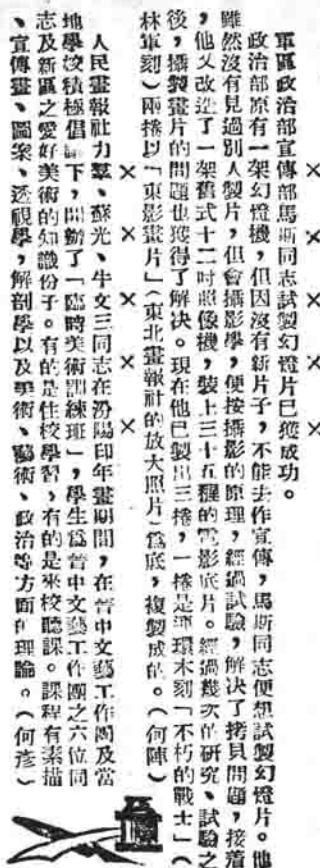 ×　×　×　×　×
軍區政治部宣傳部馬斯同志試製幻燈片已獲成功。
政治部原有一架幻燈機，但因沒有新片子，不能去作宣傳，馬斯同志便想試製幻燈片。他
雖然沒有見過別人製片，但會攝影學，便按攝影的原理，經過試驗，解決了拷貝問題，接着
，他又改造了一架舊式十二吋照像機，裝上三十五糎的電影底片。經過幾次的研究、試驗之
後，攝製畫片的問題也獲得了解決。現在他已製出三捲，一捲是連環木刻「不朽的戰士」（
林軍刻）兩捲以「東影畫片」（東北畫報社的放大照片）爲底，複製成的。（何陣）
×　×　×　×
人民畫報社力羣、蘇光、牛文三同志在汾陽印年畫期間，在晉中文藝工作團及當
地學校積極倡議下，開辦了「臨時美術訓練班」，學生爲晉中文藝工作團之六位同
志及新區之愛好美術的知識份子。有的是住校學習，有的是來校聽課。課程有素描
、宣傳畫、圖案、透視學，解剖學以及美術、藝術、政治等方面的理論。（何彥）